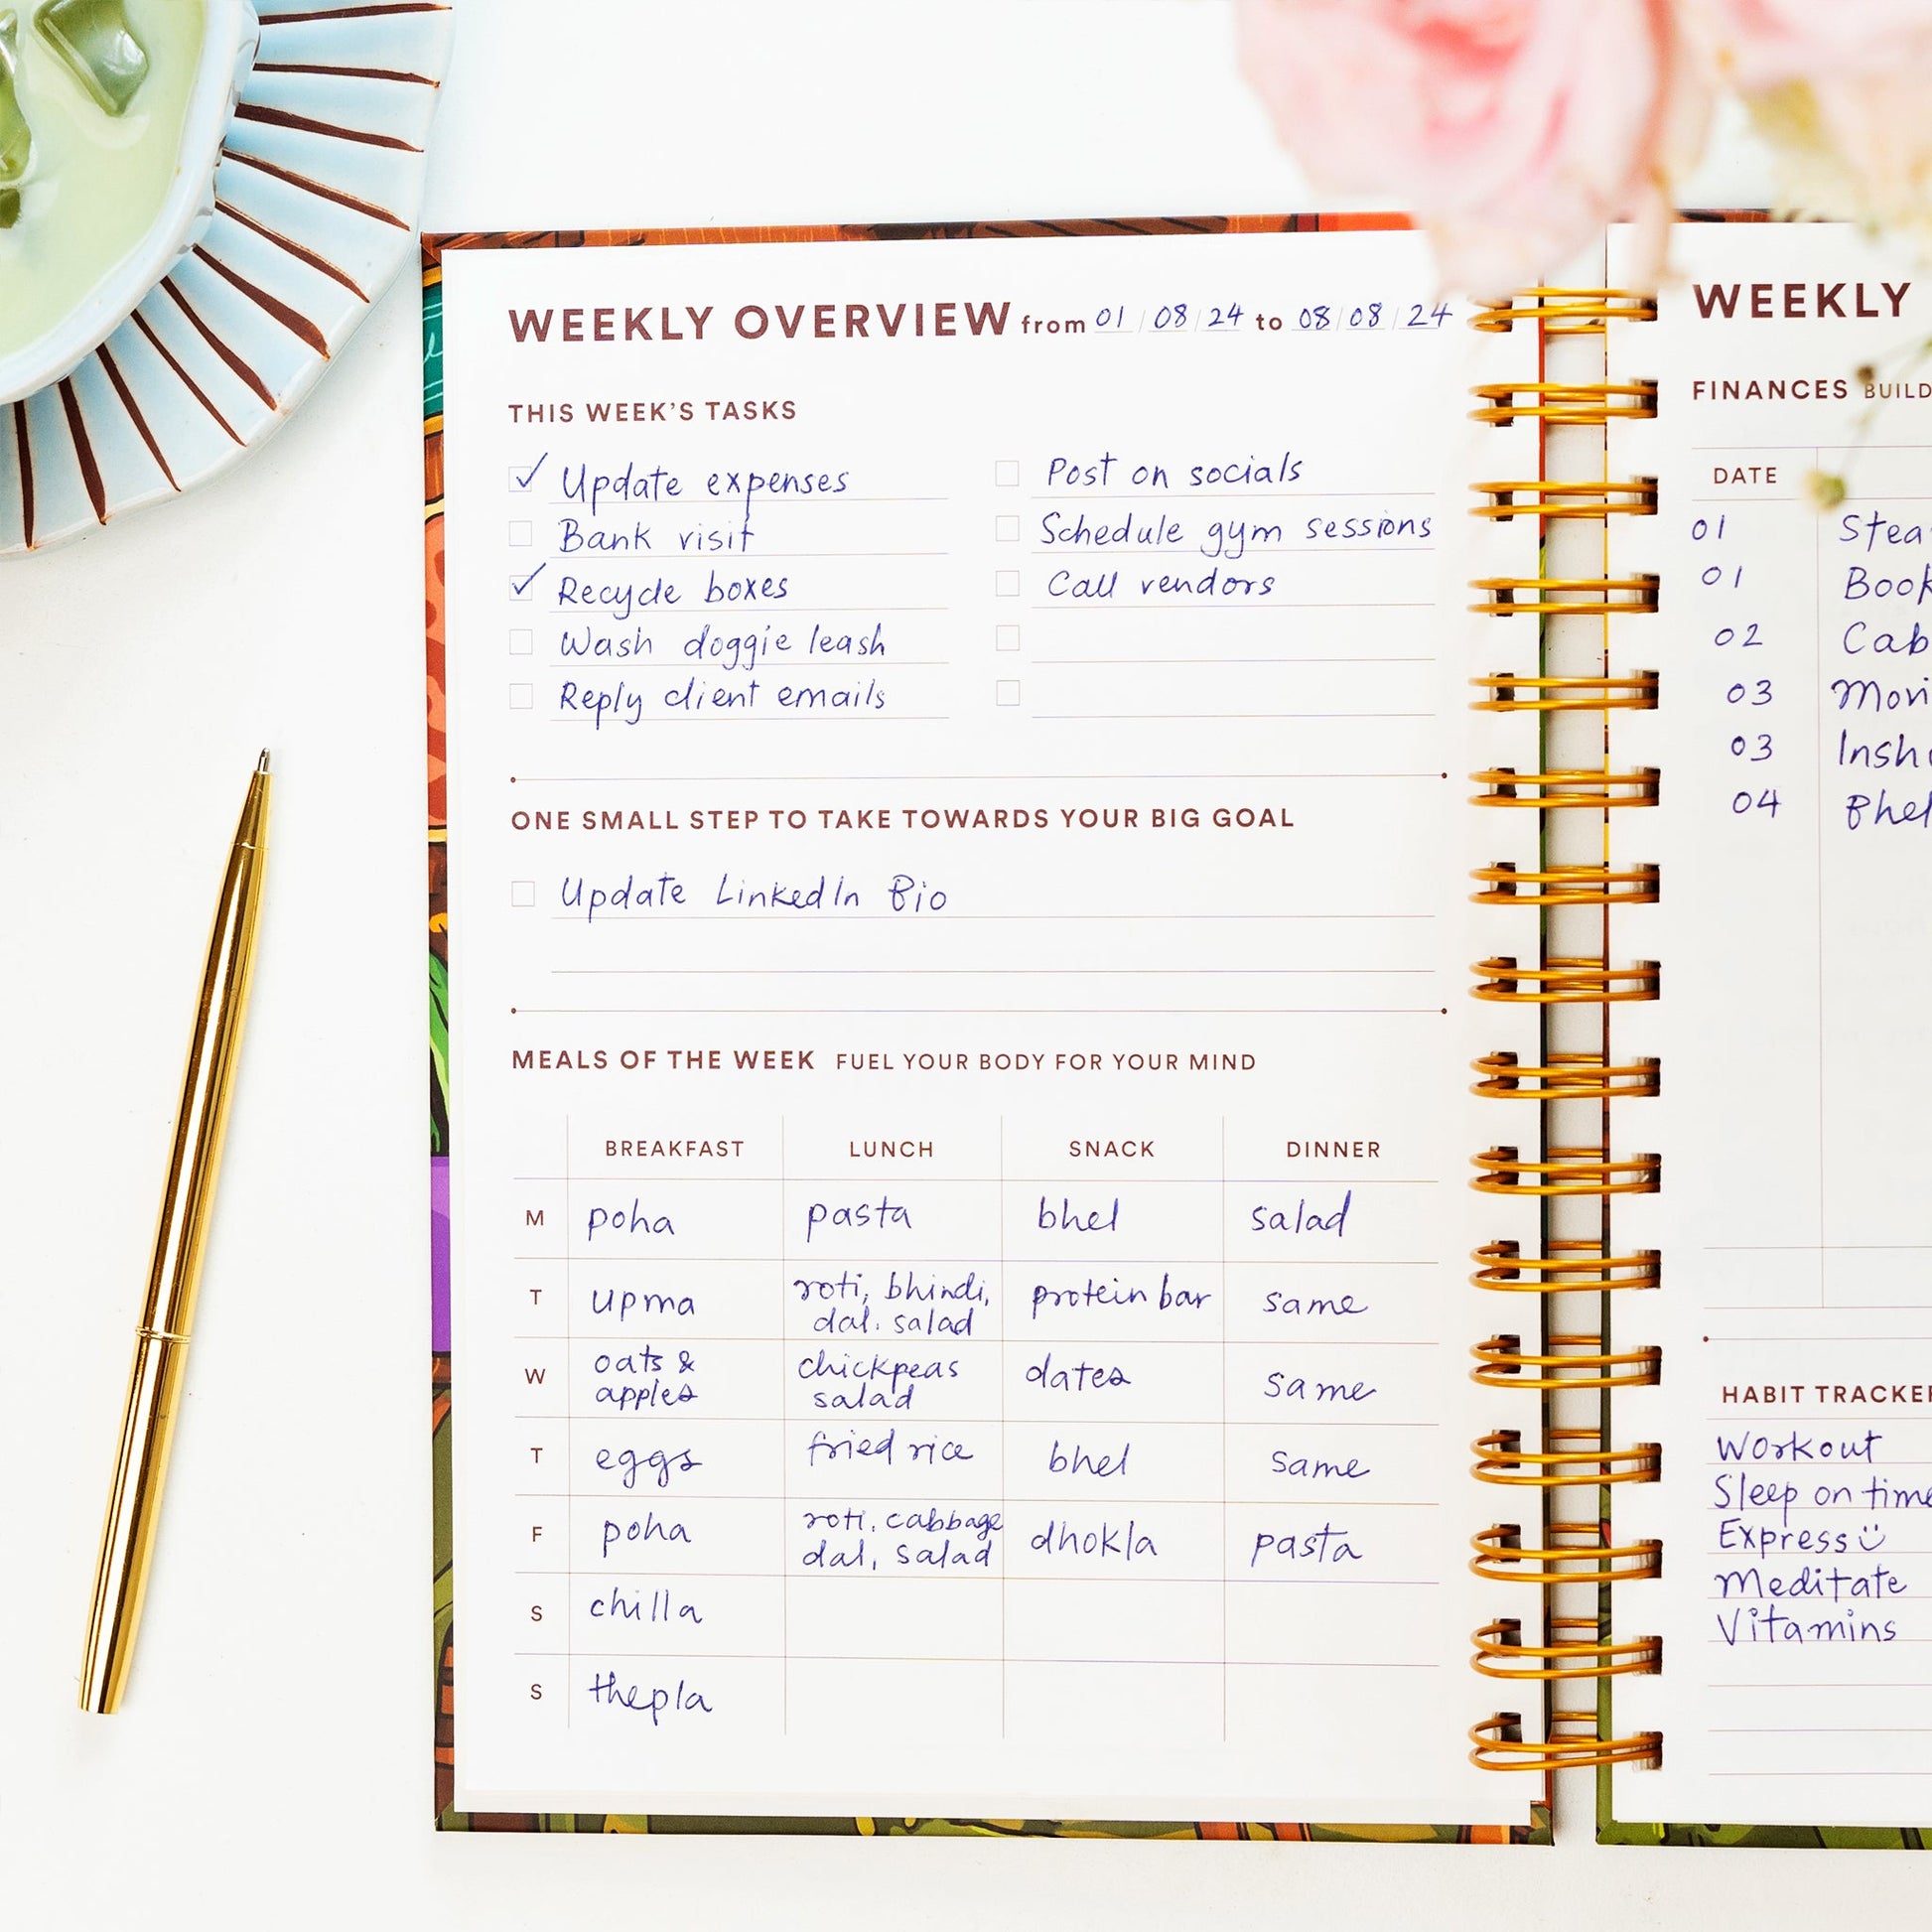 WEEKLY OVERVIEW from 01 / 08 / 24 to 08 / 08 / 24
THIS WEEK'S TASKS
Update expenses
Bank visit
Recycle boxes
Wash doggie leash
Reply client emails
Post on socials
Schedule gym sessions
Call vendors
ONE SMALL STEP TO TAKE TOWARDS YOUR BIG GOAL
Update LinkedIn Bio
MEALS OF THE WEEK FUEL YOUR BODY FOR YOUR MIND
BREAKFAST LUNCH SNACK DINNER
M poha pasta bhel salad
T upma roti, bhindi, protein bar same
dal. salad
W oats & chickpeas dates same
apples salad
T eggs fried rice bhel same
F poha roti, cabbage dhokla pasta
dal, salad
S chilla
S thepla
WEEKLY
FINANCES BUILD
DATE
01
01 Book
02 Cab
03
03
04
HABIT TRACKER
Workout
Sleep on time
Express
Meditate
Vitamins